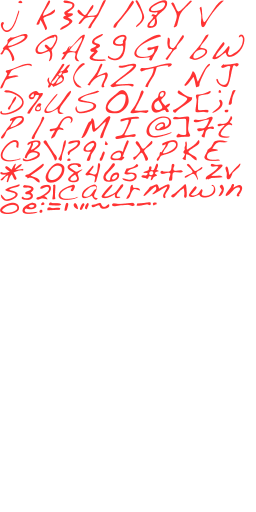 j k } H / \ 8 Y V
R Q A { g G y b W
F $ ( h Z T N J
D % U S O L & > [ ; !
P l f M I @ ] 7 t
C B \ | ? 9 i d X P K E
* < 0 8 4 6 5 # + x z v
s 3 2 1 c a u r m ^ w , n
o e : = ! ' " ~ - _ .